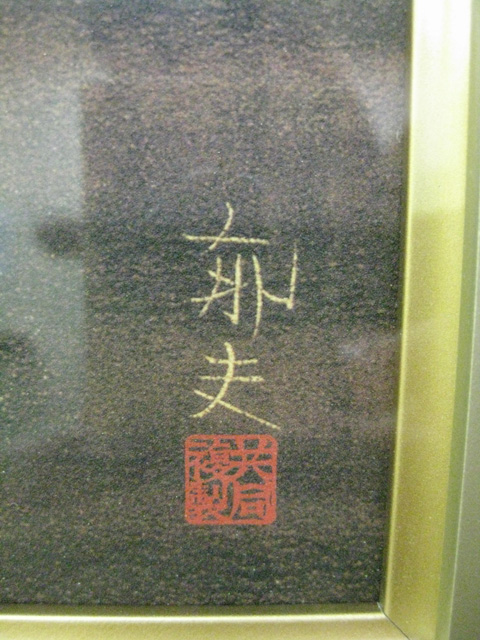 郁夫
共同
複製